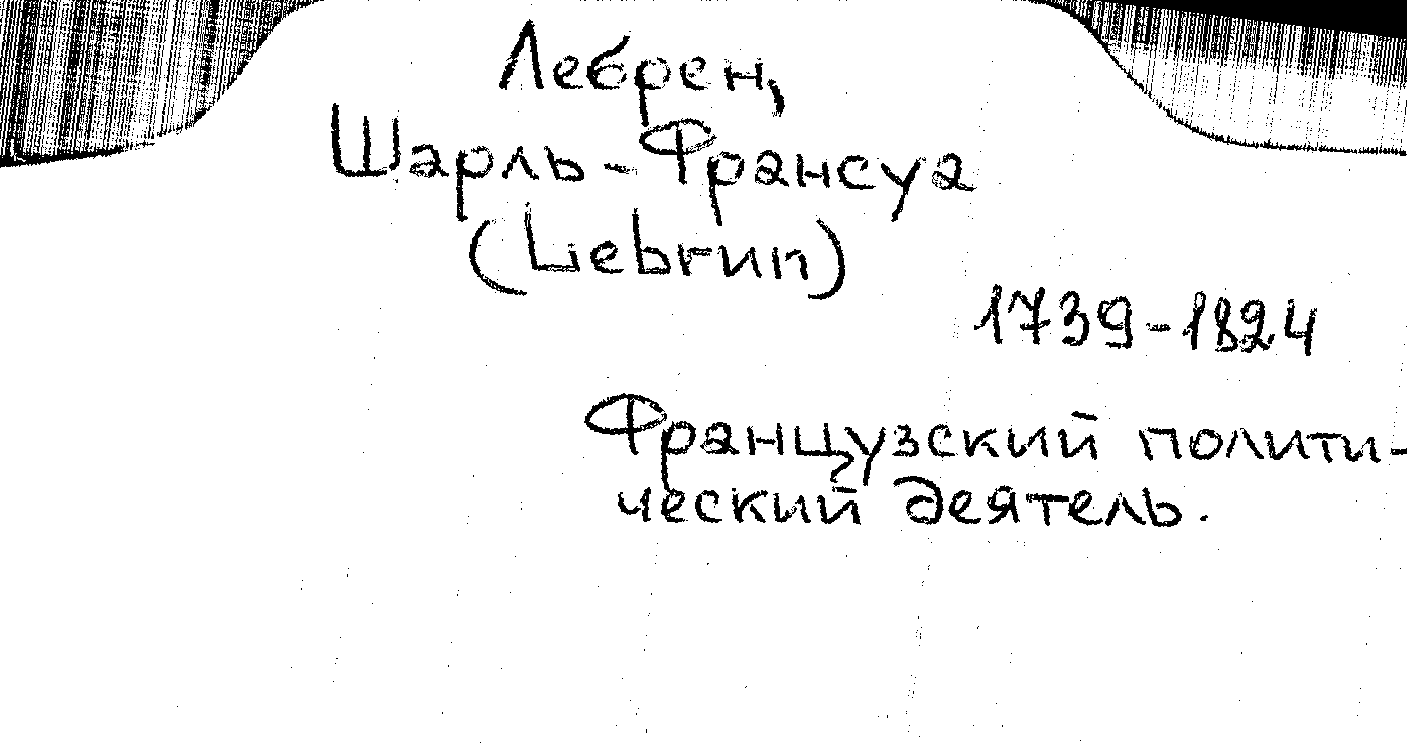 Лебрен,
Шарль-Франсуа
(Lebrun)
1739-1824
Французский полити-
ческий деятель.